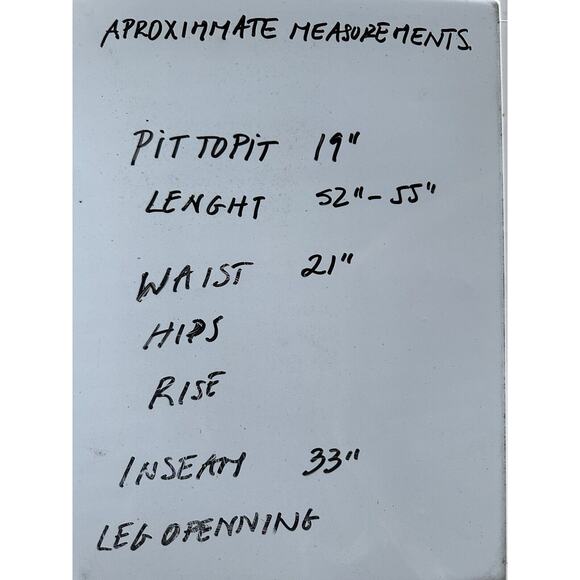 APROXIMMATE MEASUREMENTS.
PIT TO PIT 19"
LENGHT 52"-55"
WAIST 21"
HIPS
RISE
INSEAM 33"
LEG OPENNING